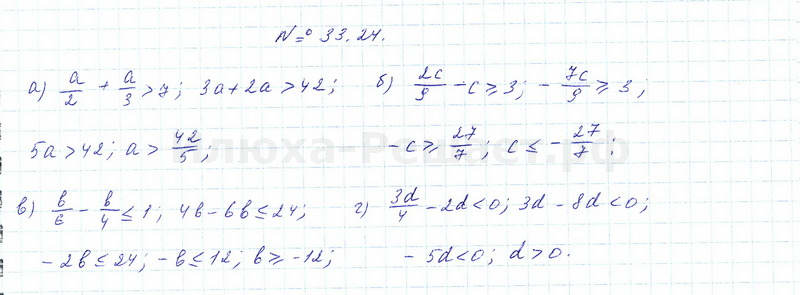 № 33.24.
а) a/2 + a/3 > 7; 3a + 2a > 42; б) 2c/9 - c ⩾ 3; - 7c/9 ⩾ 3;
5a > 42; a > 42/5; - c ⩾ 27/7; c ≤ - 27/7;
в) b/6 - b/4 ≤ 1; 4b - 6b ≤ 24; г) 3d/4 - 2d < 0; 3d - 8d < 0;
- 2b ≤ 24; - b ≤ 12; b ⩾ -12; - 5d < 0; d > 0.
Илюха-Решает.рф